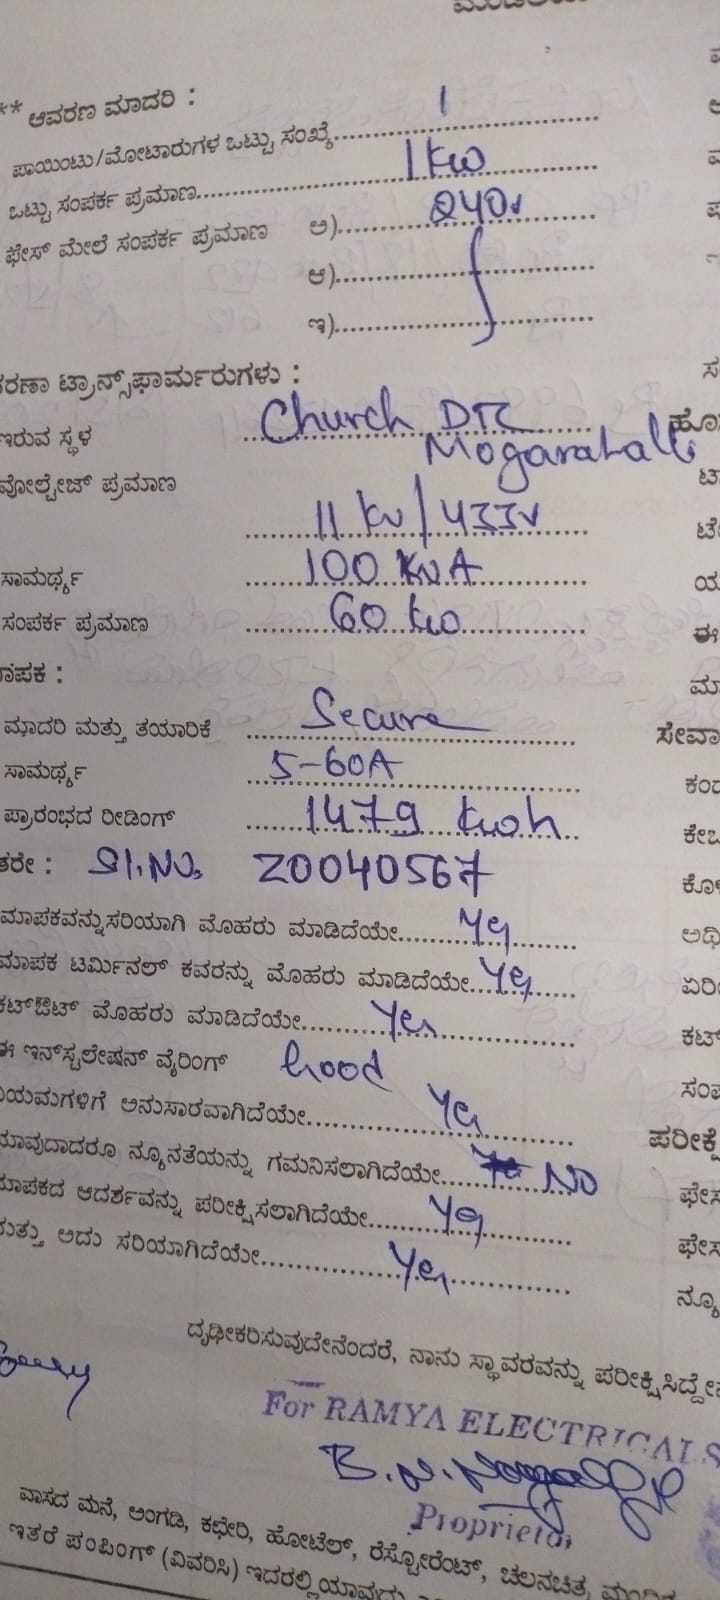 ** ಆವರಣ ಮಾದರಿ :
ಪಾಯಿಂಟು/ಮೋಟಾರುಗಳ ಒಟ್ಟು ಸಂಖ್ಯೆ.......... 1
ಒಟ್ಟು ಸಂಪರ್ಕ ಪ್ರಮಾಣ.......... 1 kw
ಫೇಸ್ ಮೇಲೆ ಸಂಪರ್ಕ ಪ್ರಮಾಣ ಅ).......... 240v
ಆ)..........
ಇ)..........
ಟ್ರಾನ್ಸ್‌ಫಾರ್ಮರುಗಳು :
ಇರುವ ಸ್ಥಳ .......... Church DTC
Mogarahalli
ವೋಲ್ಟೇಜ್ ಪ್ರಮಾಣ
.......... 11 kv / 433v
ಸಾಮರ್ಥ್ಯ .......... 100 KVA
ಸಂಪರ್ಕ ಪ್ರಮಾಣ .......... 60 kw
ಮಾದರಿ ಮತ್ತು ತಯಾರಿಕೆ .......... Secure
ಸಾಮರ್ಥ್ಯ .......... 5-60A
ಪ್ರಾರಂಭದ ರೀಡಿಂಗ್ .......... 1479 kwh
Sl.No. Z0040567
ಮಾಪಕವನ್ನುಸರಿಯಾಗಿ ಮೊಹರು ಮಾಡಿದೆಯೇ.......... Yes
ಮಾಪಕ ಟರ್ಮಿನಲ್ ಕವರನ್ನು ಮೊಹರು ಮಾಡಿದೆಯೇ.......... Yes
ಕಟ್‌ಔಟ್ ಮೊಹರು ಮಾಡಿದೆಯೇ.......... Yes
ಈ ಇನ್‌ಸ್ಟಲೇಷನ್ ವೈರಿಂಗ್ Good
ನಿಯಮಗಳಿಗೆ ಅನುಸಾರವಾಗಿದೆಯೇ.......... Yes
ಯಾವುದಾದರೂ ನ್ಯೂನತೆಯನ್ನು ಗಮನಿಸಲಾಗಿದೆಯೇ.......... No
ಮಾಪಕದ ಆದರ್ಶವನ್ನು ಪರೀಕ್ಷಿಸಲಾಗಿದೆಯೇ.......... Yes
ಮತ್ತು ಅದು ಸರಿಯಾಗಿದೆಯೇ.......... Yes
ದೃಢೀಕರಿಸುವುದೇನೆಂದರೆ, ನಾನು ಸ್ಥಾವರವನ್ನು
For RAMYA ELECTRICALS
Proprietor
ವಾಸದ ಮನೆ, ಅಂಗಡಿ, ಕಛೇರಿ, ಹೋಟೆಲ್, ರೆಸ್ಟೋರೆಂಟ್, ಚಲನಚಿತ್ರ
ಇತರೆ ಪಂಪಿಂಗ್ (ವಿವರಿಸಿ)